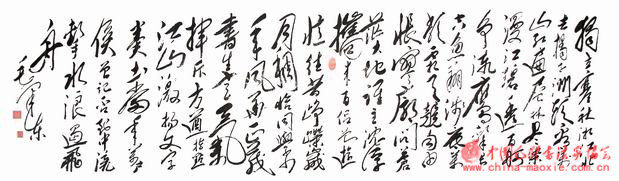 独立寒秋湘江北
去橘子洲头看万
山红遍层林尽染
漫江碧透百舸
争流鹰击长空
鱼翔浅底万类
霜天竞自由
怅寥廓问苍
茫大地谁主沉浮
携来百侣曾游
忆往昔峥嵘岁
月稠恰同学少
年风华正茂
书生意气
挥斥方遒指点
江山激扬文字
粪土当年万户
侯曾记否到中流
击水浪遏飞
舟
毛泽东
www.maoxie.com